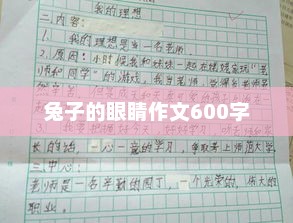 我的理想
二.内容:
1.我的理想是当一名老师。
2.原因:小时候我和妹妹一起在楼梯家玩"老
师和同学"的游戏,我当老师,觉得当老师
兔子的眼睛作文600字
长的话,一心一意的学习,争取考上师范大学
三.中心:
老师是一名辛勤的园丁,一个光荣的,伟大的
职业。